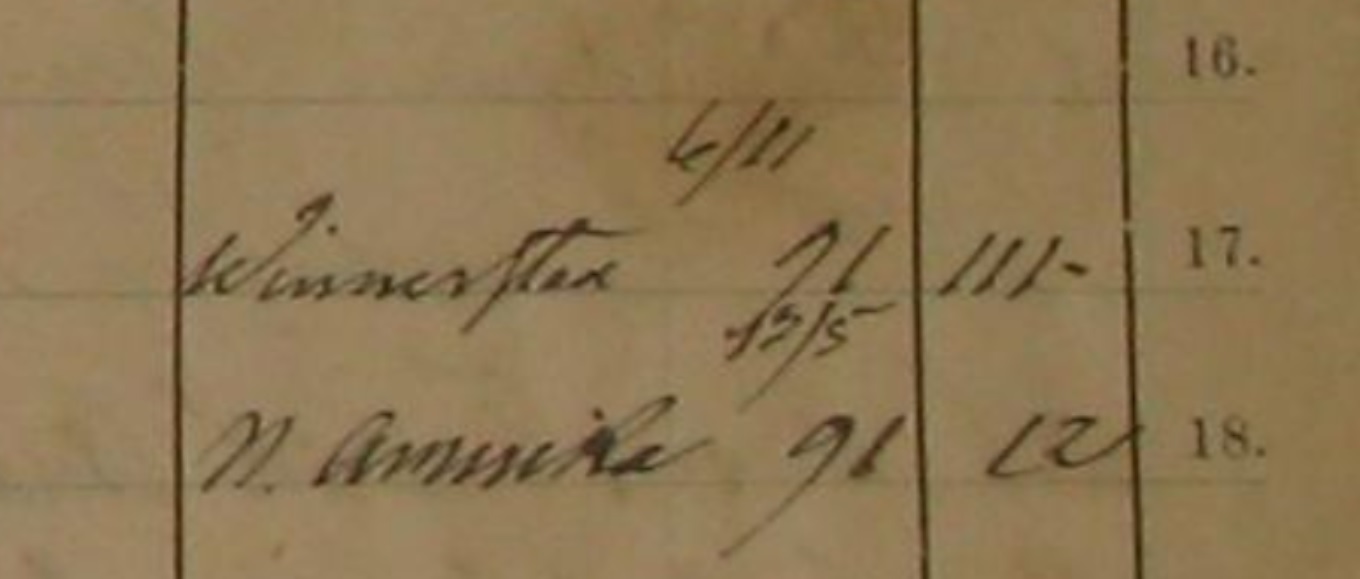 16.
6/11
Winnerstad 91 111- 17.
13/5
N. Amerika 91 12 18.